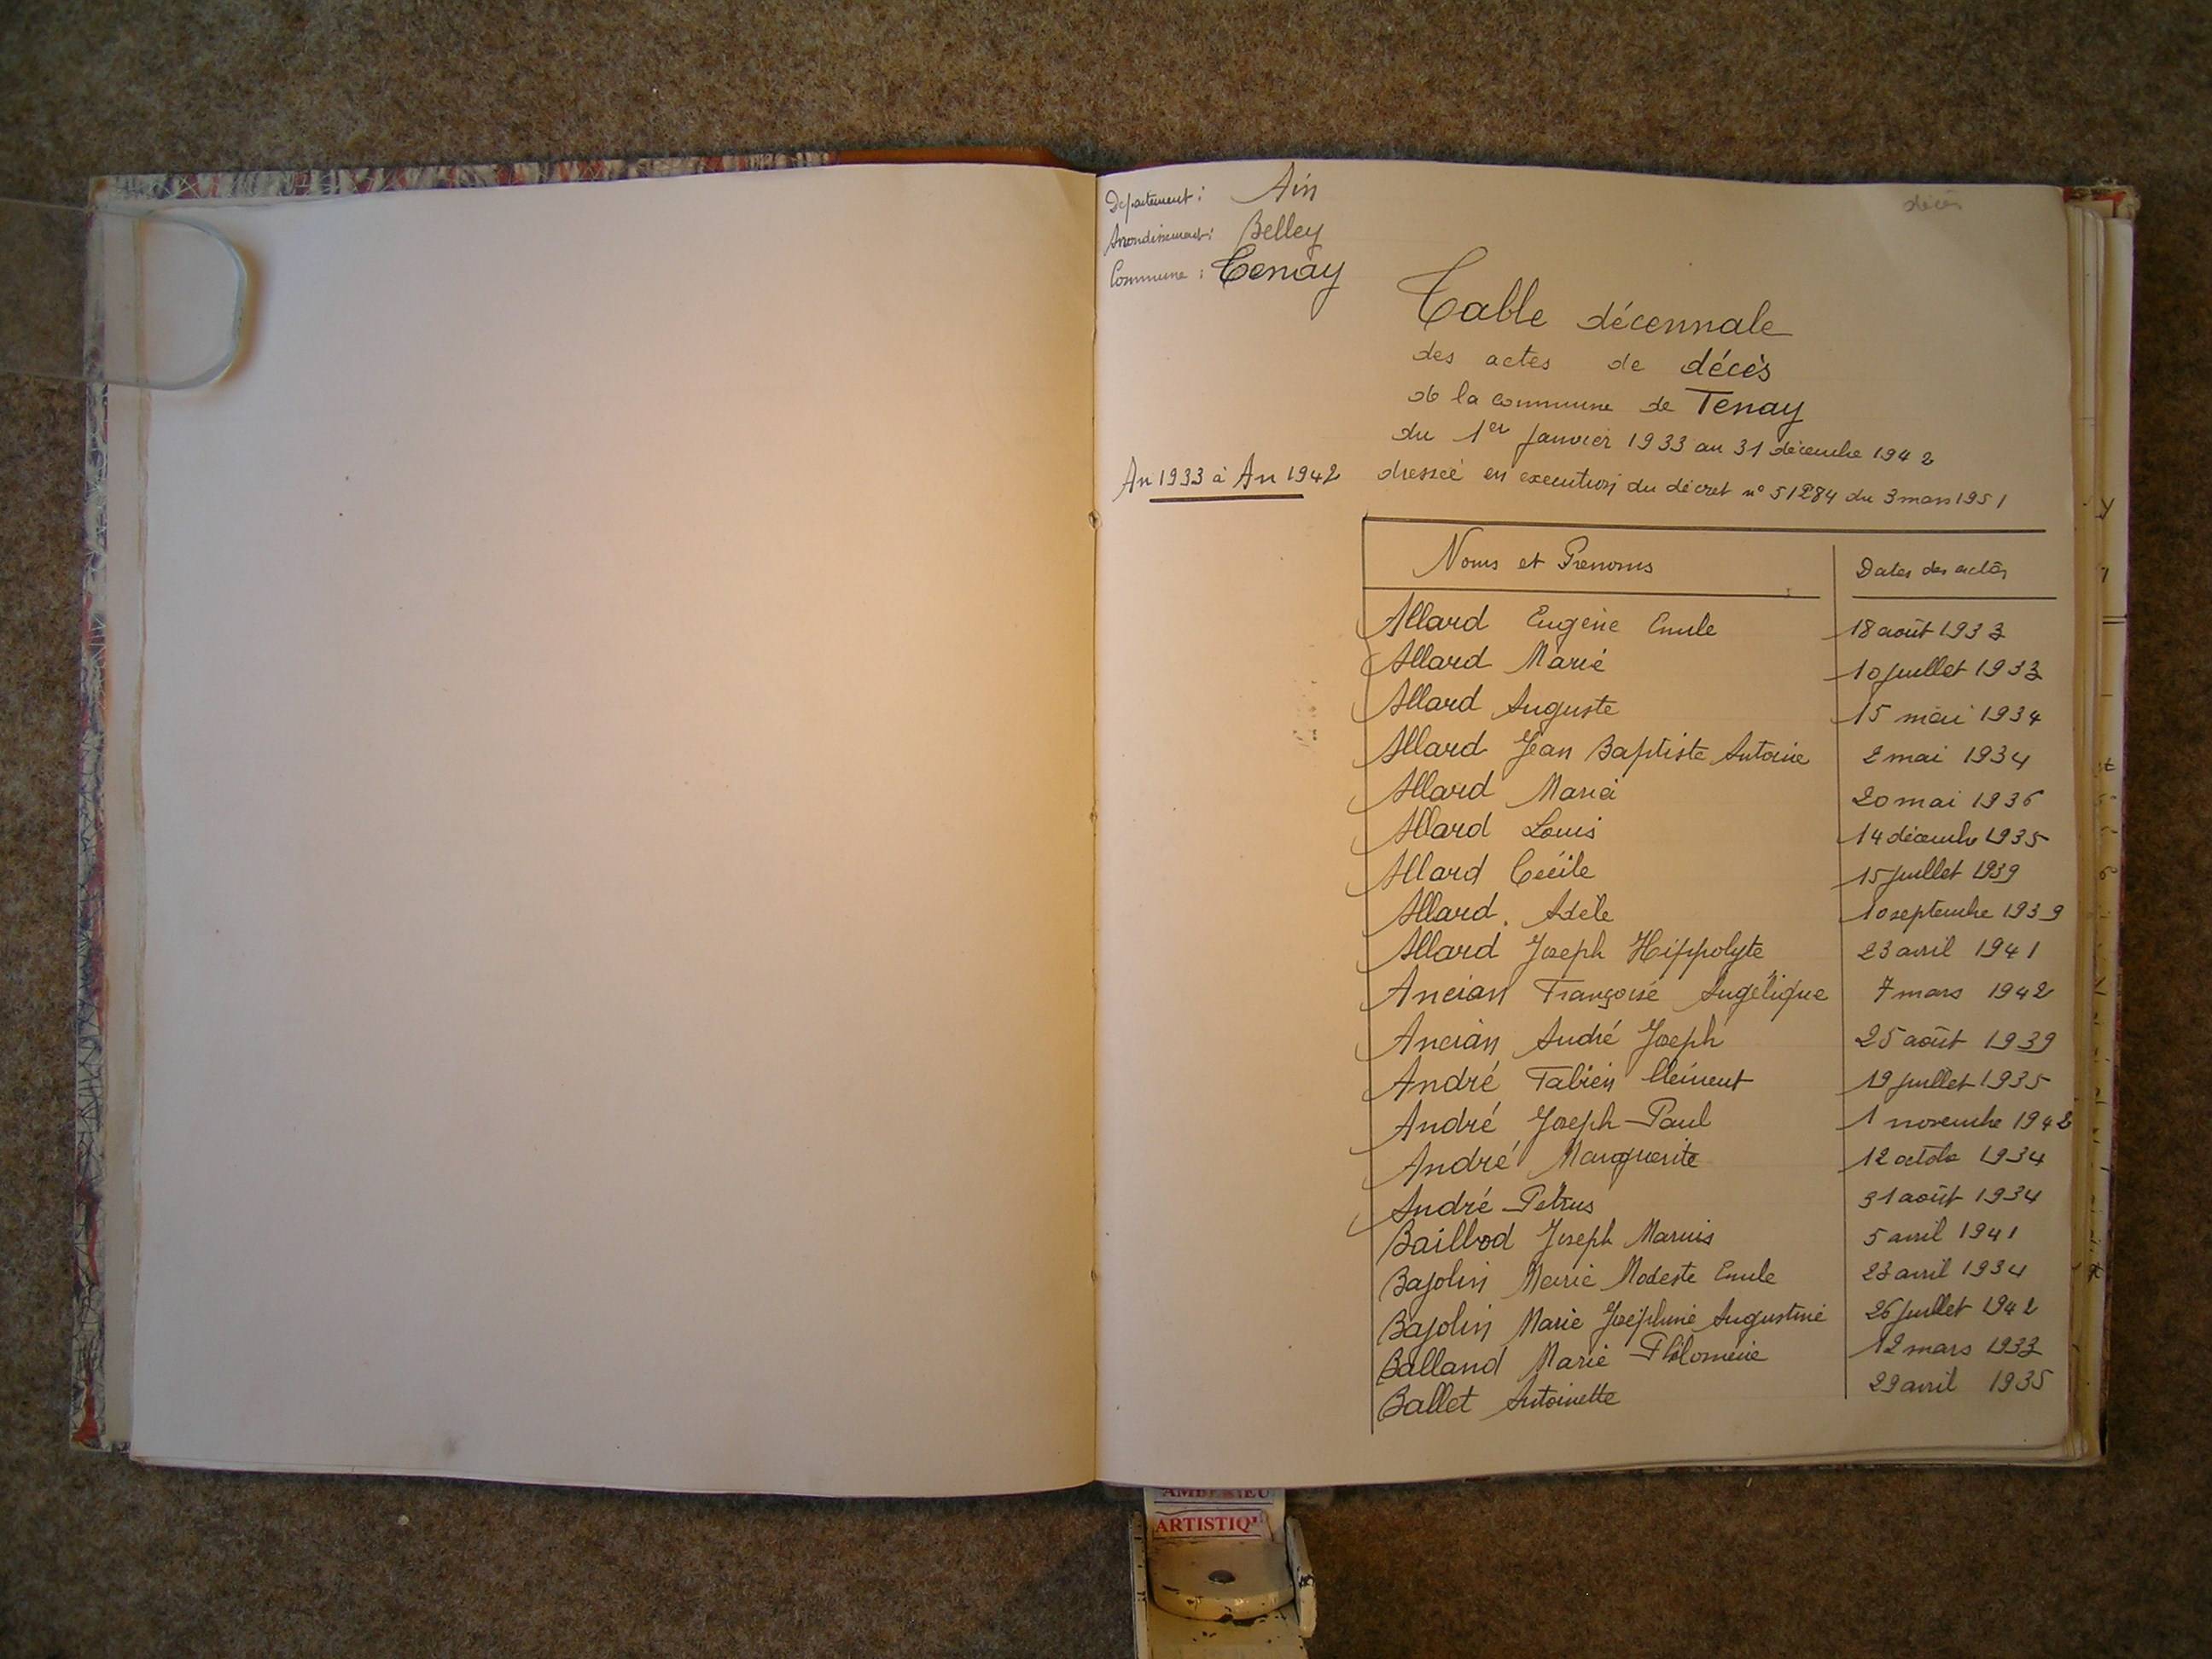 décès
Département : Ain
Arrondissement : Belley
Commune : Tenay
Table décennale
des actes de décès
de la commune de Tenay
du 1er Janvier 1933 au 31 décembre 1942
An 1933 à An 1942
dressée en execution du décret n° 51284 du 3 mars 1951
Noms et Prenoms Dates des actes
Allard Eugène Emile 18 août 1933
Allard Marie 10 juillet 1933
Allard Auguste 15 mai 1934
Allard Jean Baptiste Antoine 2 mai 1934
Allard Maria 20 mai 1936
Allard Louis 14 décembre 1935
Allard Cécile 15 juillet 1939
Allard. Adèle 10 septembre 1939
Allard Joseph Hippolyte 23 avril 1941
Ancian Françoise Angélique 7 mars 1942
Ancian André Joseph 25 août 1939
André Fabien Clément 19 juillet 1935
André Joseph-Paul 1 novembre 1942
André Marguerite 12 octobre 1934
André Petrus 31 août 1934
Baillod Joseph Marius 5 avril 1941
Bajolin Marie Modeste Emile 23 avril 1934
Bajolin Marie Joséphine Augustine 26 juillet 1942
Balland Marie Philomène 12 mars 1933
Ballet Antoinette 29 avril 1935
AMBERIEU
ARTISTIQ